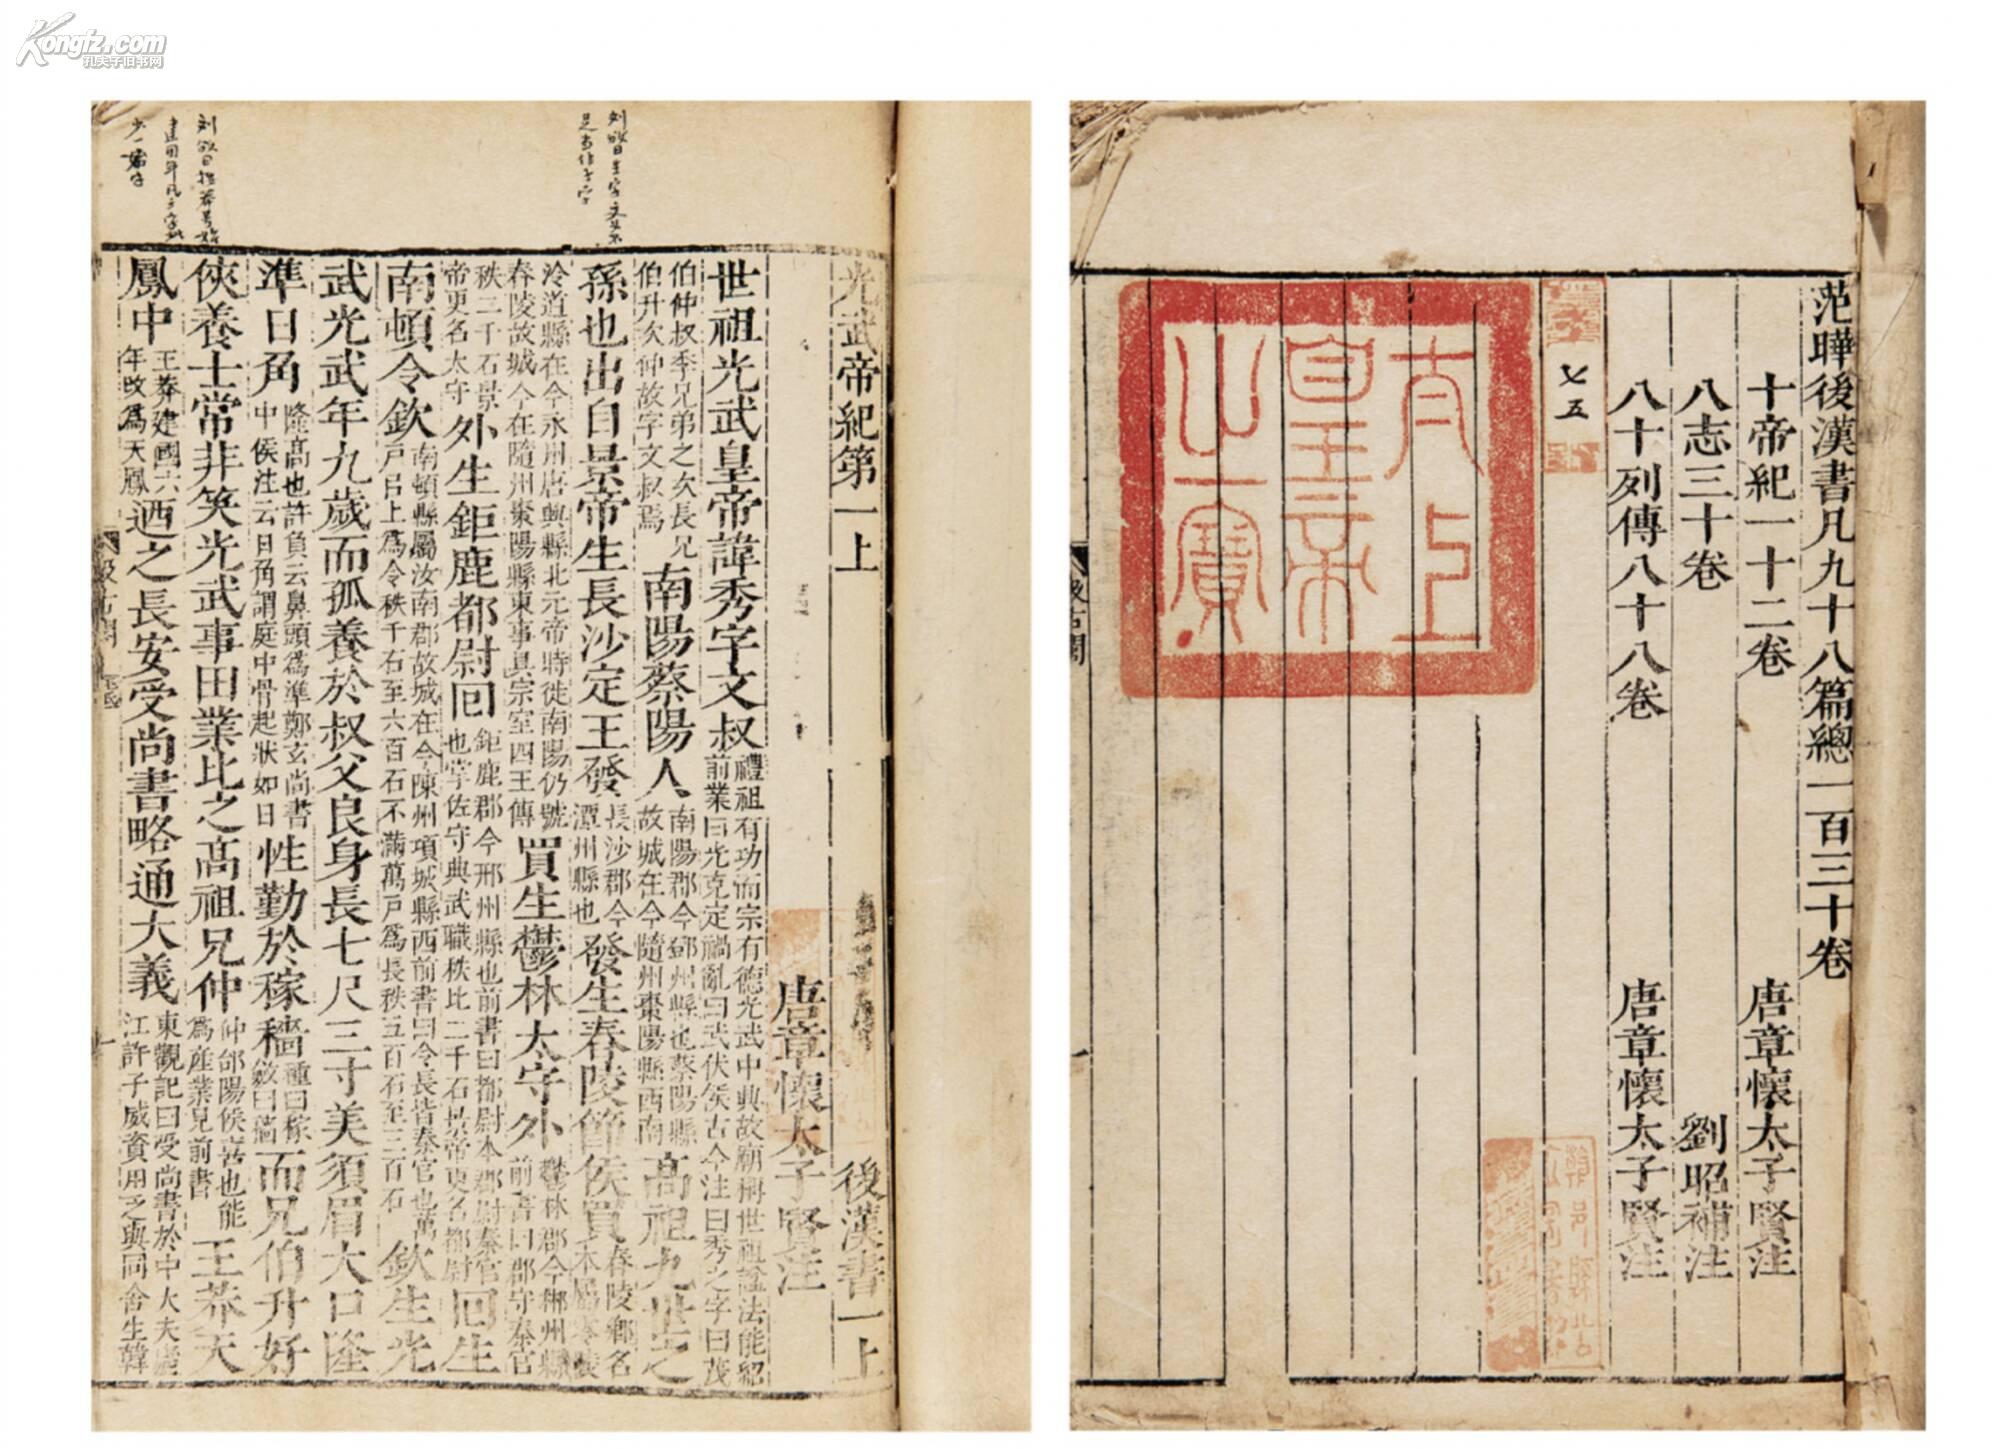 Kongfz.com
孔夫子旧书网
范曄後漢書凡九十八篇總一百三十卷
十帝紀一十二卷 唐章懷太子賢注
八志三十卷 劉昭補注
八十列傳八十八卷 唐章懷太子賢注
七五
太上
皇帝
之寶
汲古閣
光武帝紀第一上 後漢書一上
唐章懷太子賢注
世祖光武皇帝諱秀字文叔禮祖有功而宗有德光武中興故廟稱世祖諡法能紹前業曰光克定禍亂曰武伏侯古今注曰秀之字曰茂
伯仲叔季兄弟之次長兄伯升次仲故字文叔焉南陽蔡陽人南陽郡今鄧州縣也蔡陽縣故城在今隨州棗陽縣西南高祖九世之
孫也出自景帝生長沙定王發長沙郡今潭州縣也發生舂陵節侯買舂陵鄉名本屬零陵
泠道縣在今永州唐興縣北元帝時徙南陽仍號舂陵故城今在隨州棗陽縣東事具宗室四王傳買生鬱林太守外鬱林郡今郴州縣前書曰郡守秦官
秩二千石景帝更名太守外生鉅鹿都尉回鉅鹿郡今邢州縣也前書曰都尉本郡尉秦官也掌佐守典武職秩比二千石景帝更名都尉回生
南頓令欽南頓縣屬汝南郡故城在今陳州項城縣西前書曰令長皆秦官也萬戶已上為令秩千石至六百石不滿萬戶為長秩五百石至三百石欽生光
武光武年九歲而孤養於叔父良身長七尺三寸美須眉大口隆
準日角隆高也許負云鼻頭為準鄭玄尚書中候注云日角謂庭中骨起狀如日性勤於稼穡種曰稼斂曰穡而兄伯升好
俠養士常非笑光武事田業比之高祖兄仲仲郃陽侯喜也能為產業見前書王莽天
鳳中王莽建國六年改為天鳳迺之長安受尚書略通大義東觀記曰受尚書於中大夫廬江許子威資用乏與同舍生韓
汲古閣